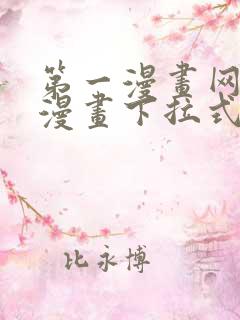 第一漫畫网
漫畫下拉式
比永博